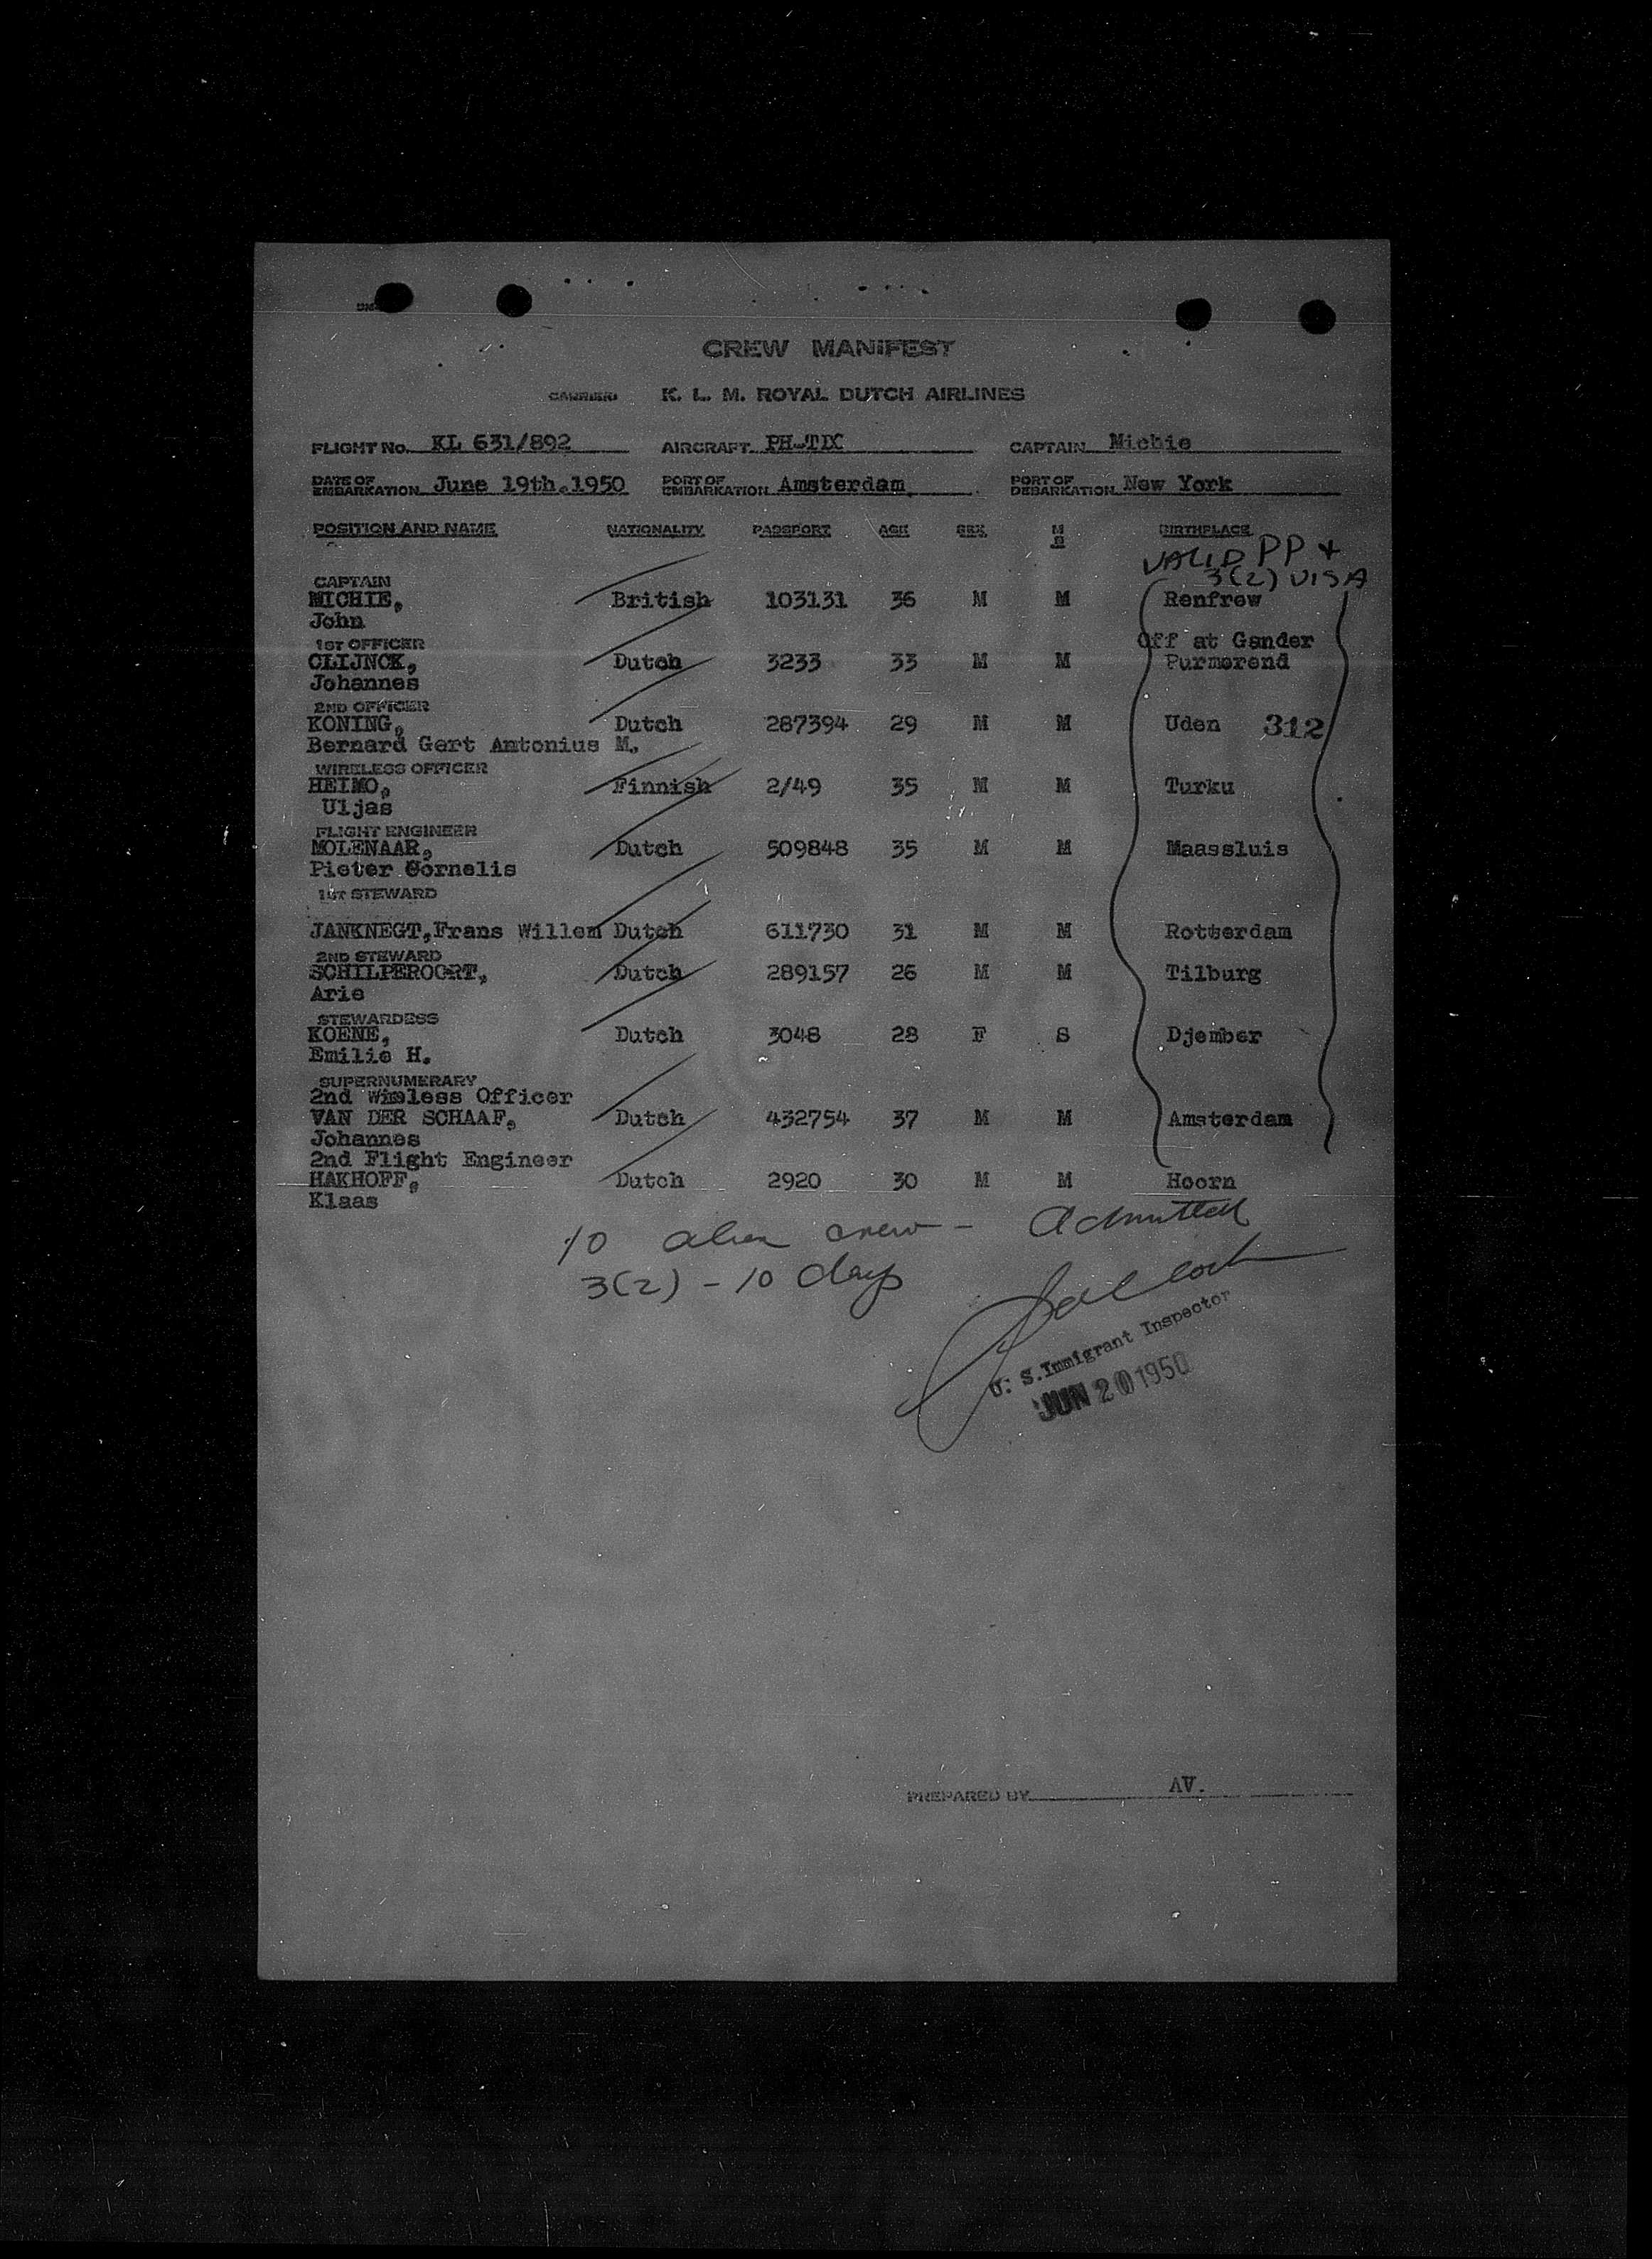 CREW MANIFEST
CARRIER: K. L. M. ROYAL DUTCH AIRLINES
FLIGHT No. KL 631/892 AIRCRAFT PH-TDC CAPTAIN Michie
DATE OF EMBARKATION June 19th.1950 PORT OF EMBARKATION Amsterdam. PORT OF DEBARKATION New York
POSITION AND NAME NATIONALITY PASSPORT AGE SEX M S BIRTHPLACE
VALID PP +
3(2) VISA
CAPTAIN
MICHIE, British 103131 36 M M Renfrew
John
1ST OFFICER Off at Gander
CLIJNCK, Dutch 3233 33 M M Purmerend
Johannes
2ND OFFICER
KONING, Dutch 287394 29 M M Uden 312
Bernard Gert Antonius M.
WIRELESS OFFICER
HEIMO, Finnish 2/49 35 M M Turku
Uljas
FLIGHT ENGINEER
MOLENAAR, Dutch 509848 35 M M Maassluis
Pieter Cornelis
1ST STEWARD
JANKNEGT,Frans Willem Dutch 611730 31 M M Rotterdam
2ND STEWARD
SCHILPEROORT, Dutch 289157 26 M M Tilburg
Arie
STEWARDESS
KOENE, Dutch 3048 28 F S Djember
Emilie H.
SUPERNUMERARY
2nd Wireless Officer
VAN DER SCHAAF, Dutch 432754 37 M M Amsterdam
Johannes
2nd Flight Engineer
HAKHOFF, Dutch 2920 30 M M Hoorn
Klaas
10 alien crew - Admitted
3(2) - 10 days
U. S. Immigrant Inspector
JUN 20 1950
PREPARED BY AV.